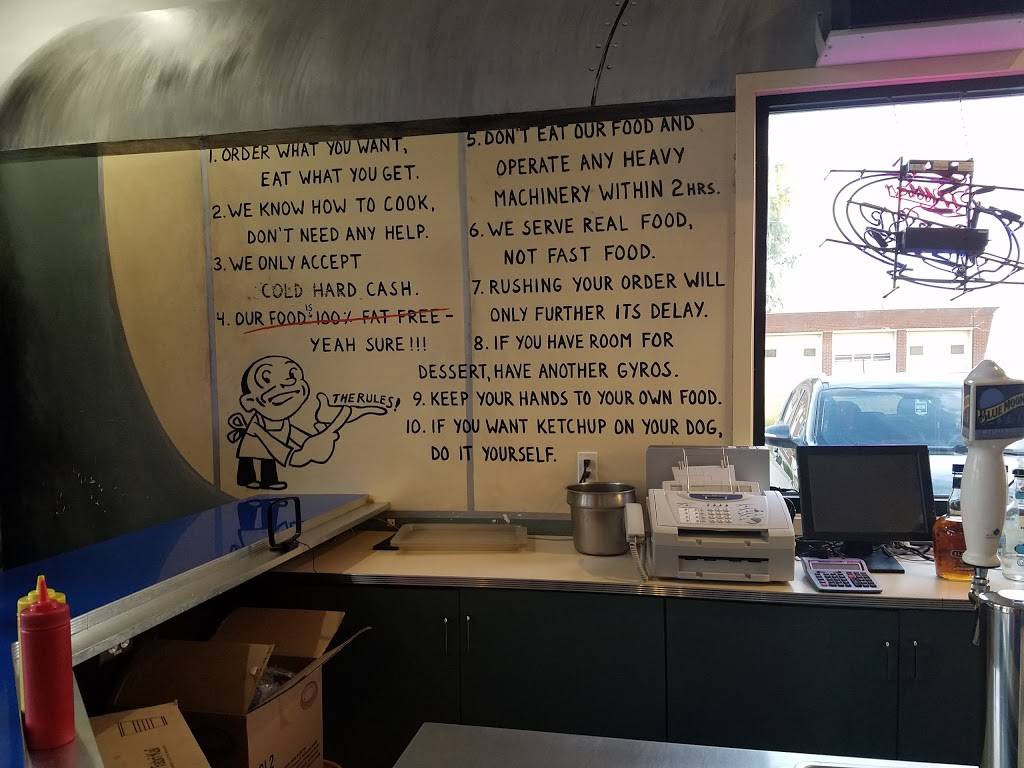 1. ORDER WHAT YOU WANT,
EAT WHAT YOU GET.
2. WE KNOW HOW TO COOK,
DON'T NEED ANY HELP.
3. WE ONLY ACCEPT
COLD HARD CASH.
4. OUR FOOD IS 100% FAT FREE -
YEAH SURE!!!
THE RULES!
5. DON'T EAT OUR FOOD AND
OPERATE ANY HEAVY
MACHINERY WITHIN 2 HRS.
6. WE SERVE REAL FOOD,
NOT FAST FOOD.
7. RUSHING YOUR ORDER WILL
ONLY FURTHER ITS DELAY.
8. IF YOU HAVE ROOM FOR
DESSERT, HAVE ANOTHER GYROS.
9. KEEP YOUR HANDS TO YOUR OWN FOOD.
10. IF YOU WANT KETCHUP ON YOUR DOG,
DO IT YOURSELF.
BLUE MOON